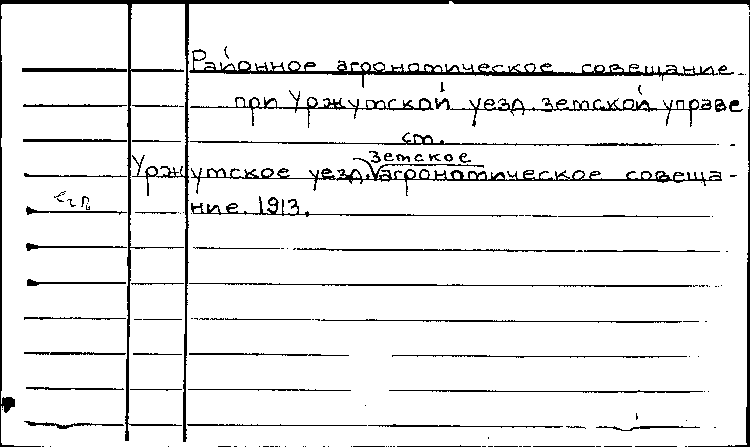 Районное агрономическое совещание
при Уржумской уезд. земской управе
см.
земское
Уржумское уезд. агрономическое совеща-
ние. 1913.